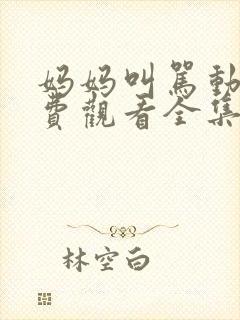 妈妈叫駡動
費觀看全集
林空白